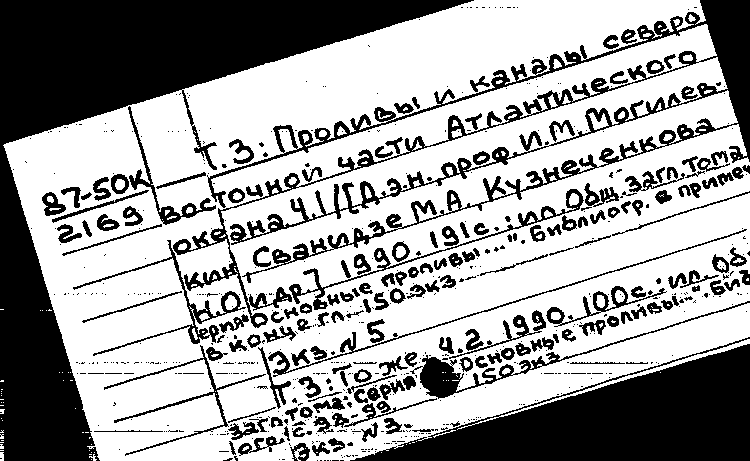 Т.3: Проливы и каналы северо
87-50К
2169
восточной части Атлантического
океана. Ч.1/[Д.э.н., проф. И.М. Могилев-
кин, Сванидзе М.А., Кузнеченкова
Н.О и др.] 1990. 191с.: ил. Общ. загл. тома
Серия "Основные проливы...". Библиогр. в примеч
в конце гл. - 150 экз.
Экз. N 5.
Т.3: То же. Ч.2. 1990. 100с.: ил. Об
загл. тома: Серия "Основные проливы...". Биб
огр.: с. 98-99. 150 экз.
Экз. N 3.